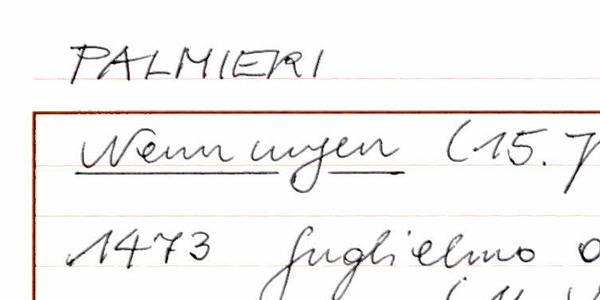 PALMIERI
Nennungen (15. J
1473 Guglielmo